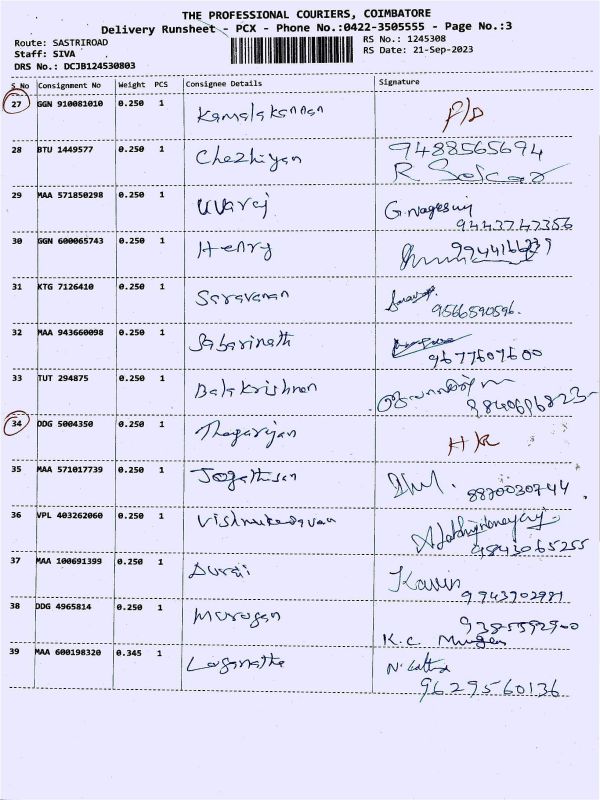 THE PROFESSIONAL COURIERS, COIMBATORE
Delivery Runsheet - PCX - Phone No.:0422-3505555 - Page No.:3
Route: SASTRIROAD
RS No.: 1245308
Staff: SIVA
RS Date: 21-Sep-2023
DRS No.: DCJB124530803
S No Consignment No Weight PCS Consignee Details Signature
27 GGN 910081010 0.250 1 Kamalakannan P/D
28 BTU 1449577 0.250 1 Chezhiyan 9488565694
29 MAA 571850298 0.250 1 Uvaraj
9443747356
30 GGN 600065743 0.250 1 Henry
31 KTG 7126410 0.250 1 Saravanan
9566590596.
32 MAA 943660098 0.250 1 Sabarinath
9677607600
33 TUT 294875 0.250 1 Balakrishnan
34 DDG 5004350 0.250 1 Thagarajan
35 MAA 571017739 0.250 1
8870030744
36 VPL 403262060 0.250 1
9843065255
37 MAA 100691399 0.250 1 Durai Kavin
38 DDG 4965814 0.250 1 Murugan
K.C. Murugan
39 MAA 600198320 0.345 1
9629560136